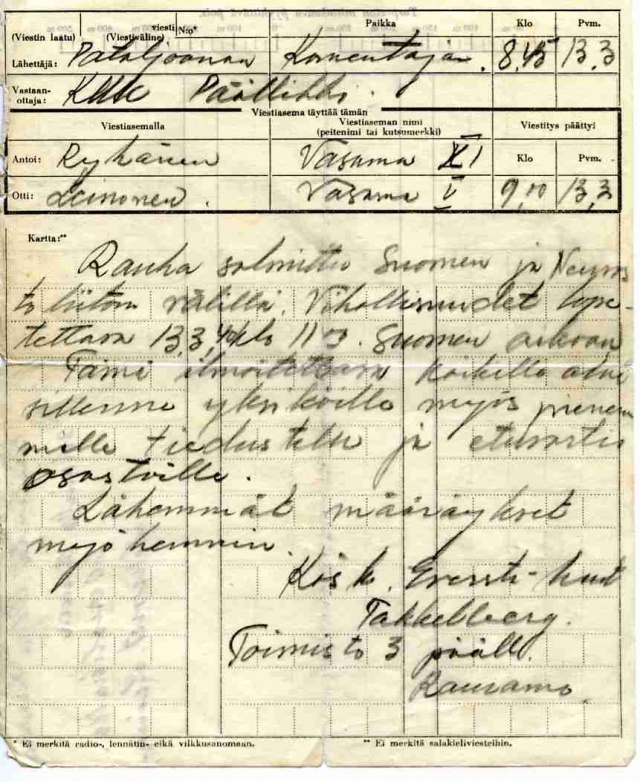 (Viestin laatu) viesti N:o* Paikka Klo Pvm.
(Viestiväline)
Lähettäjä: Pataljoonan Komentaja. 8,45 13.3
Vastaan-
ottaja: KKK Päällikkö.
Viestiasema täyttää tämän
Viestiasemalla Viestiaseman nimi Viestitys päättyi
(peitenimi tai kutsumerkki)
Antoi: Ryhänen Vasama XI Klo Pvm.
Otti: Leinonen. Vasama V 9,00 13,3
Kartta:**
Rauha solmittu Suomen ja Neuvos
toliiton välillä. Vihollisuudet lope-
tettava 13.3.40 klo 11 Suomen aikaan
Tämä ilmoitettava kaikille alai
sillenne yksiköille myös pienem
mille tiedustelu ja etuvartio
osastoille.
Lähemmät määräykset
myöhemmin.
Kösk. Eversti-luut
Takkelberg.
Toimisto 3 pääll.
Rausamo.
* Ei merkitä radio-, lennätin- eikä vilkkusanomaan. ** Ei merkitä salakieliviesteihin.